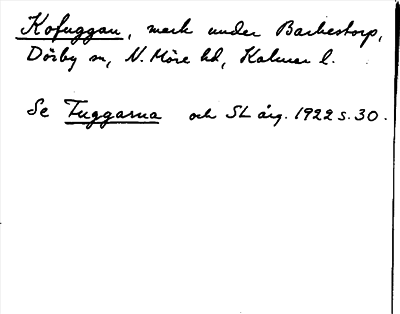 Kofuggan, mark under Barkestorp,
Dörby sn, N. Möre hd, Kalmar l.
Se Fuggarna och SL årg. 1922 s. 30.